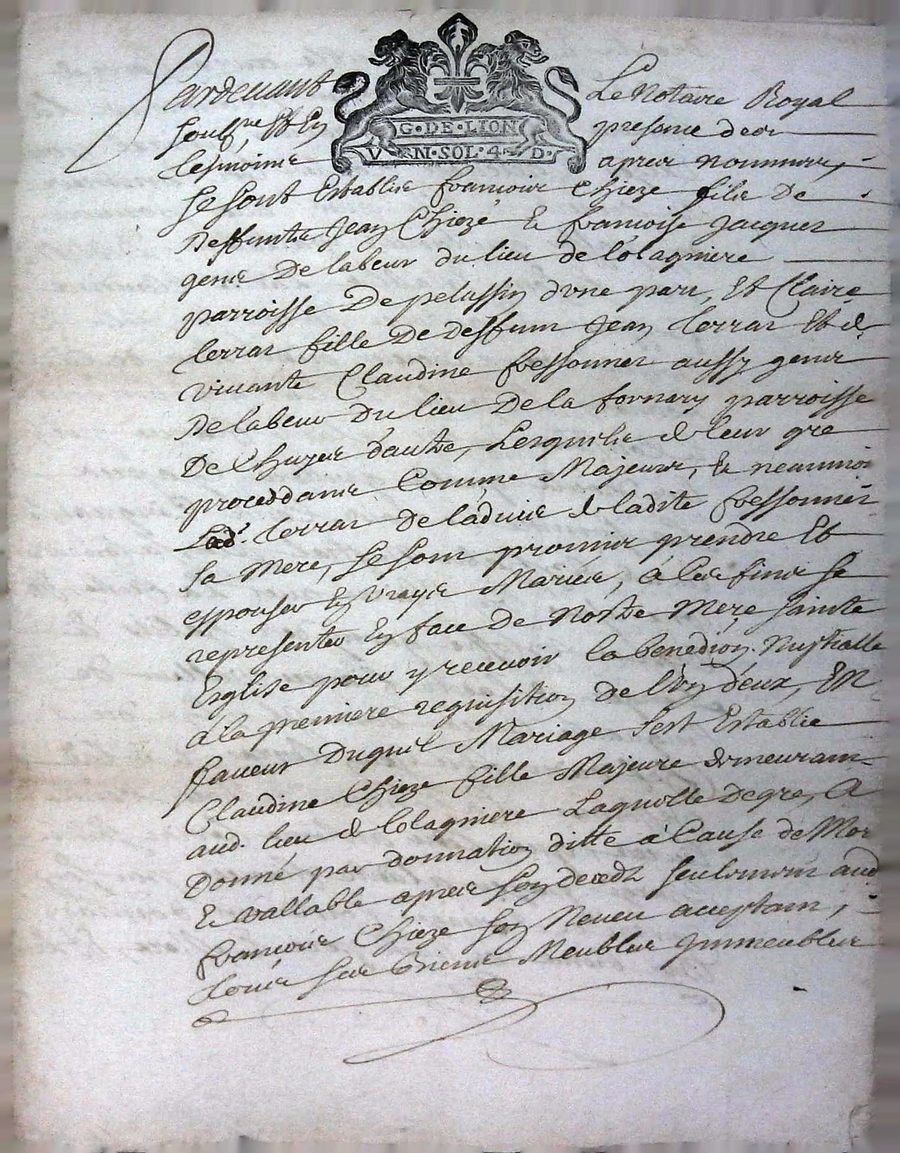 Pardevant Le Notaire Royal
G·DE·LION
V N·SOL·4·D·
soubsne Et En presance des
tesmoins apres nommes,
se sont Establis francois Chieze filz de
deffuntz Jean Chieze & francoise Jacques
gens De labeur du lieu de Colagniere
parroisse De pelussin d'une part, Et Claire
terras fille De deffunt Jean terras Et de
vivante Claudine fressonnet aussy gens
De labeur Du lieu De la fornary parroisse
De Chuyes d'autre, Lesquelz de leur gre
proceddants Comme Majeurs, & neanmoi
Lad. terras de ladvis de ladite fressonnet
sa mere, se sont promis prendre Et
espouser En vrays Maries, A Ces fins se
representer En face de Nostre Mere sainte
Esglise pour y recevoir la benediction Nuptialle
a la premiere requisition de l'un d'eux, En
faveur Duquel Mariage s'est Establie
Claudine Chieze fille Majeure demeurant
aud. lieu de Colagniere Laquelle de gre, A
Donné par donnation ditte à Cause de Mor
& vallable apres son deceds seulement aud
francois Chieze son Neveu acceptant,
tous ses biens Meubles Immeubles